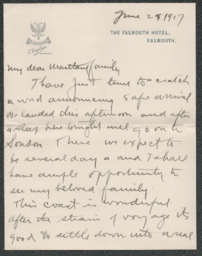 June 28 1917
THE FALMOUTH HOTEL,
FALMOUTH.
My dear Martha & family
I have just time to scratch
a word announcing safe arrival
We landed this afternoon and after
a sleep here tonight will go on to
London. There we expect to
be several days and I shall
have ample opportunity to
see my beloved family.
This coast is wonderful
after the strain of voyage its
good to settle down into a real